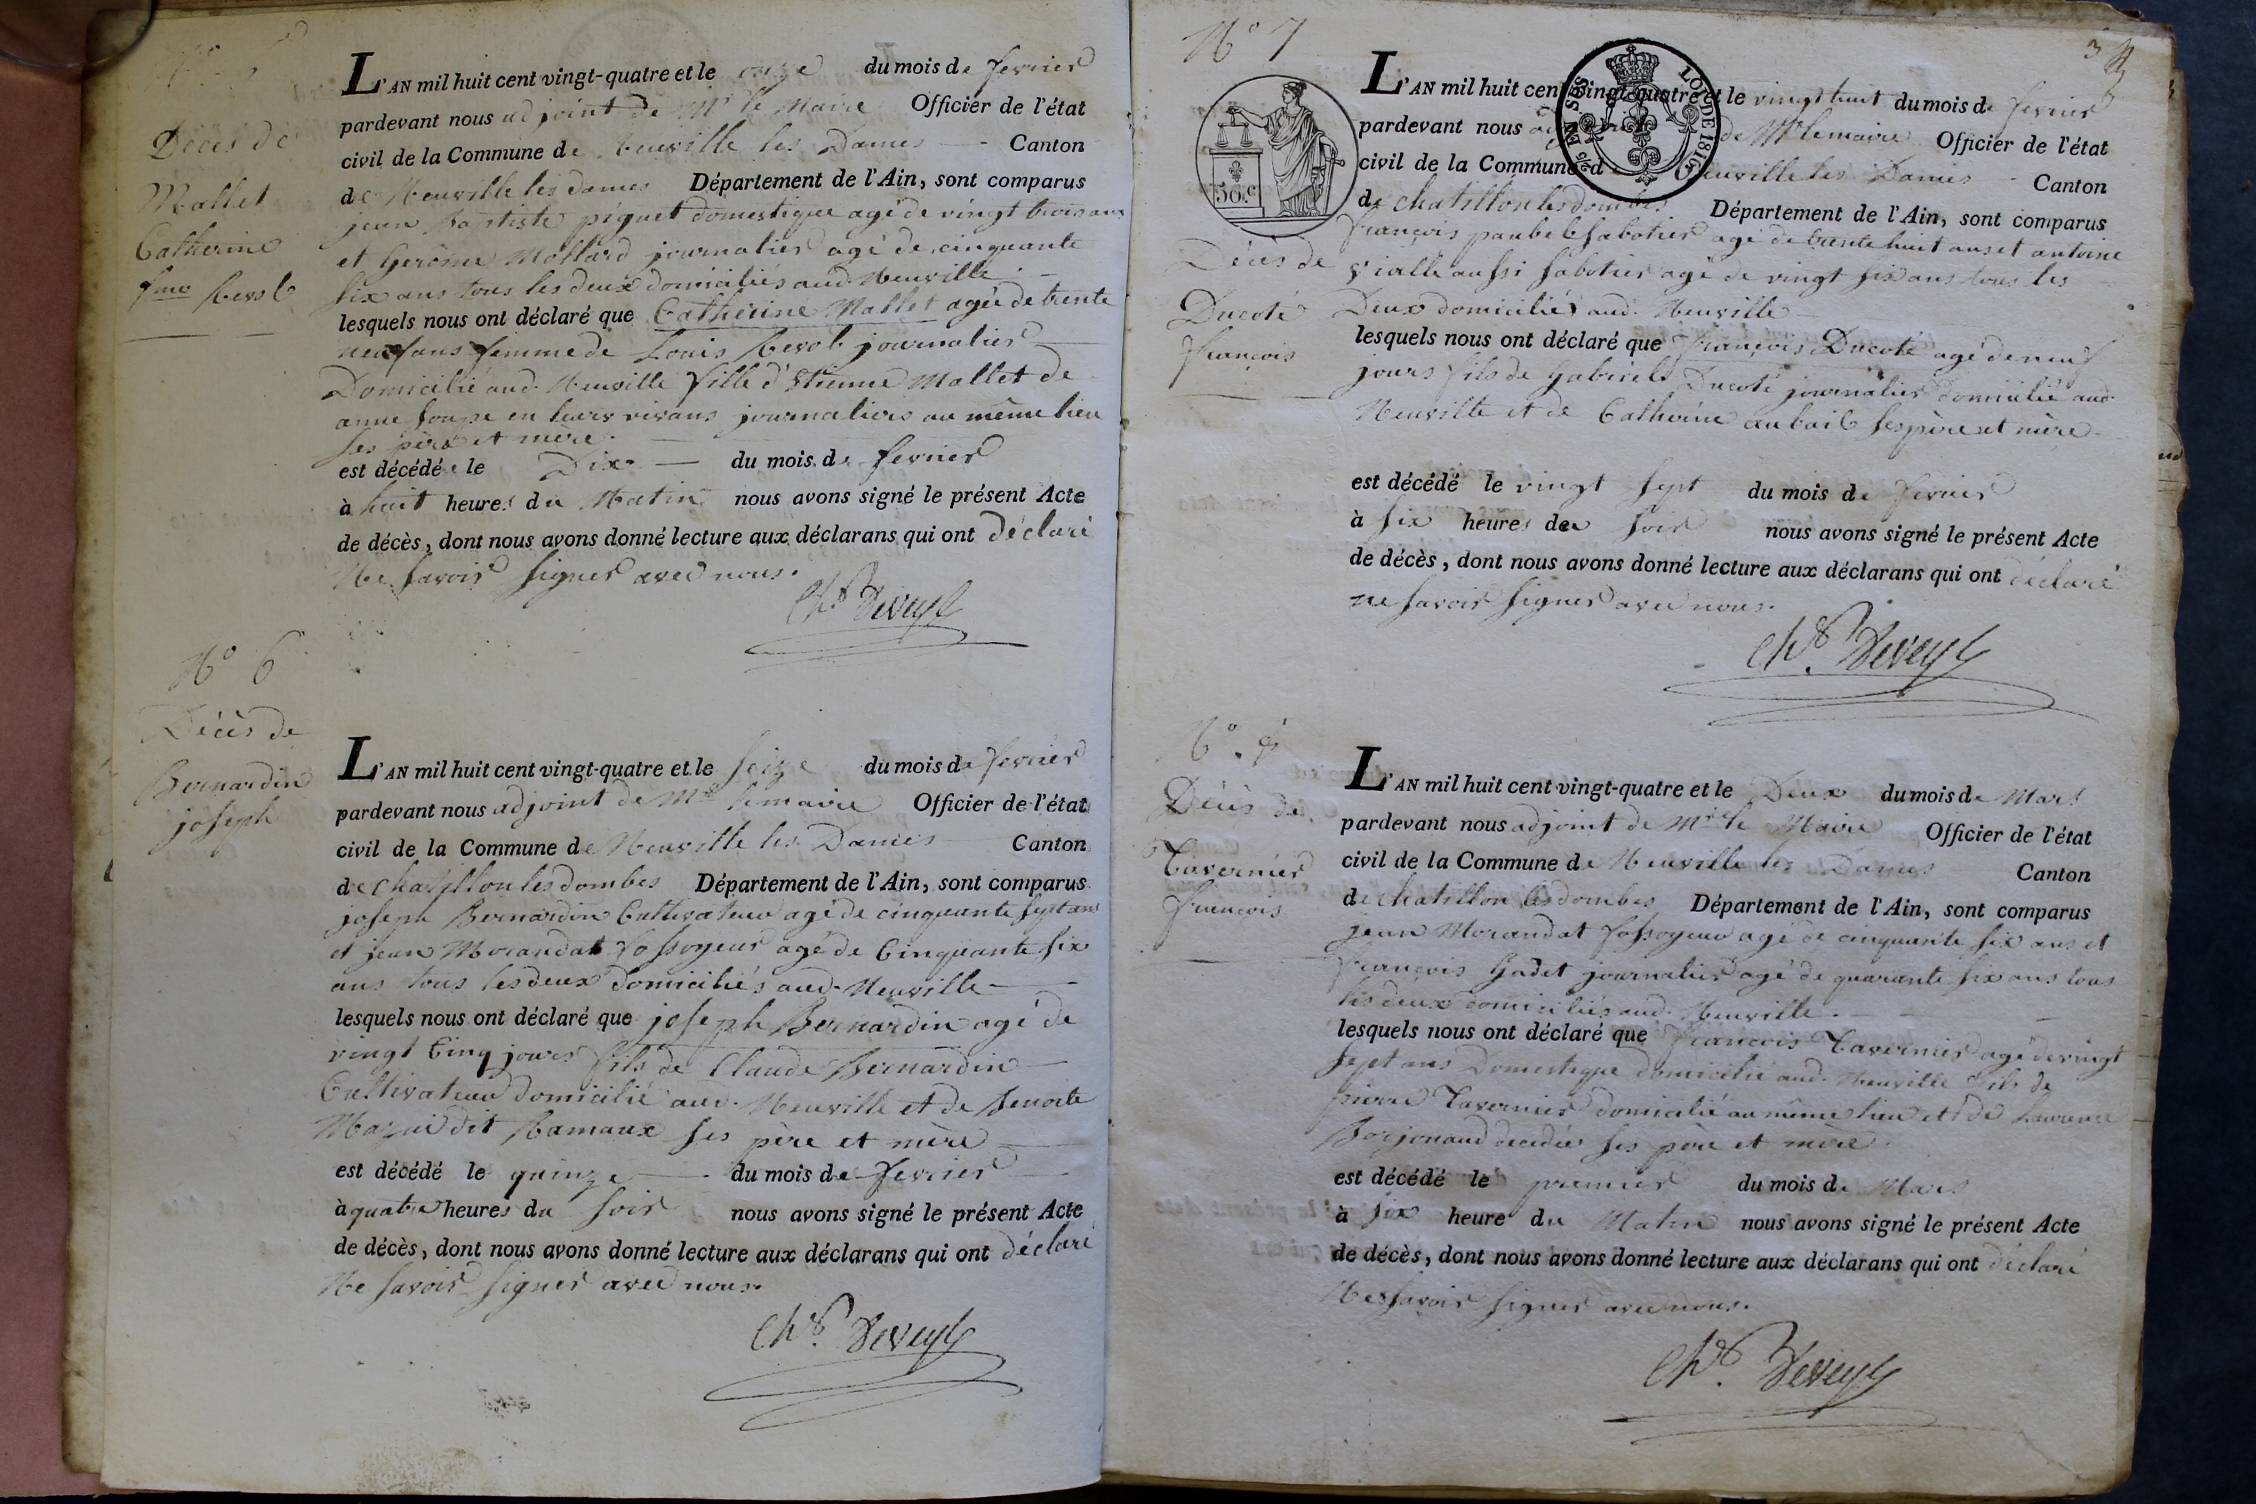 Décès de
Mallet
Catherine
fme
L'AN mil huit cent vingt-quatre et le onze du mois de fevrier
pardevant nous adjoint de Mr le Maire Officier de l'état
civil de la Commune de Neuville les Dames Canton
de Neuville les dames Département de l'Ain, sont comparus
jean Baptiste piguet domestique agé de vingt trois ans
et Gerôme Mollard journalier agé de cinquante
six ans tous les deux domiciliés aud. Neuville
lesquels nous ont déclaré que Catherine Mallet agée de trente
neuf ans femme de Louis journalier
Domicilié aud. Neuville fille d'Etienne Mallet de
anne en leurs vivans journaliers au même lieu
ses père et mère.
est décédée le Dix du mois de fevrier
à huit heures du Matin nous avons signé le présent Acte
de décès, dont nous avons donné lecture aux déclarans qui ont déclaré
Ne savoir signer avec nous.
Chs Deveyle
N° 6
Décès de
Bernardin
joseph
L'AN mil huit cent vingt-quatre et le seize du mois de fevrier
pardevant nous adjoint de Mr lemaire Officier de l'état
civil de la Commune de Neuville les Dames Canton
de chatillon les dombes Département de l'Ain, sont comparus
joseph Bernardin Cultivateur agé de cinquante sept ans
et jean Morandat fossoyeur agé de Cinquante six
ans tous les deux domiciliés aud. Neuville
lesquels nous ont déclaré que joseph Bernardin agé de
vingt Cinq jours fils de Claude Bernardin
Cultivateur domicilié aud. Neuville et de Benoite
dit Ramaux ses père et mère
est décédé le quinze du mois de fevrier
à quatre heures du soir nous avons signé le présent Acte
de décès, dont nous avons donné lecture aux déclarans qui ont déclaré
Ne savoir signer avec nous.
Chs. Deveyle
3
N° 7
50 c
25 EN SUS
LOI DE 1816
Décès de
Ducoté
françois
L'AN mil huit cent vingt-quatre et le vingt huit du mois de fevrier
pardevant nous de Mr lemaire Officier de l'état
civil de la Commune d Neuville les Dames Canton
de chatillon les dombes Département de l'Ain, sont comparus
françois sabotier agé de trente huit ans et antoine
vialle aussi sabotier agé de vingt six ans tous les
Deux domiciliés aud. Neuville
lesquels nous ont déclaré que françois Ducoté agé de neuf
jours fils de Gabriel Ducoté journalier domicilié aud.
Neuville et de Catherine aubail ses père et mère
est décédé le vingt sept du mois de fevrier
à six heures du soir nous avons signé le présent Acte
de décès, dont nous avons donné lecture aux déclarans qui ont déclaré
ne savoir signer avec nous.
Chs. Deveyle
N°. 8
Décès de
Tavernier
françois
L'AN mil huit cent vingt-quatre et le Deux du mois de Mars
pardevant nous adjoint de Mr le Maire Officier de l'état
civil de la Commune de Neuville les Dames Canton
de chatillon les dombes Département de l'Ain, sont comparus
jean Morandat fossoyeur agé de cinquante six ans et
françois Gadet journalier agé de quarante six ans tous
les deux domiciliés aud. Neuville.
lesquels nous ont déclaré que françois Tavernier agé de vingt
sept ans Domestique domicilié aud. Neuville fils de
pierre Tavernier domicilié au même lieu et de Laurence
Borjonaud decedée ses père et mère.
est décédé le premier du mois de Mars
à six heure du Matin nous avons signé le présent Acte
de décès, dont nous avons donné lecture aux déclarans qui ont déclaré
Ne savoir signer avec nous.
Chs. Deveyle